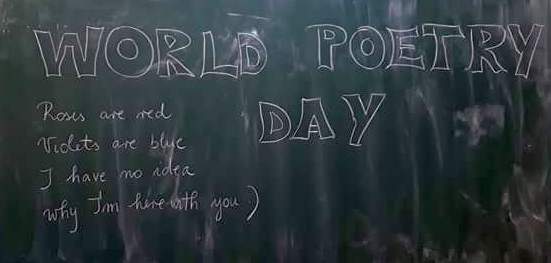 WORLD POETRY
DAY
Roses are red
Violets are blue
I have no idea
why I'm here with you )